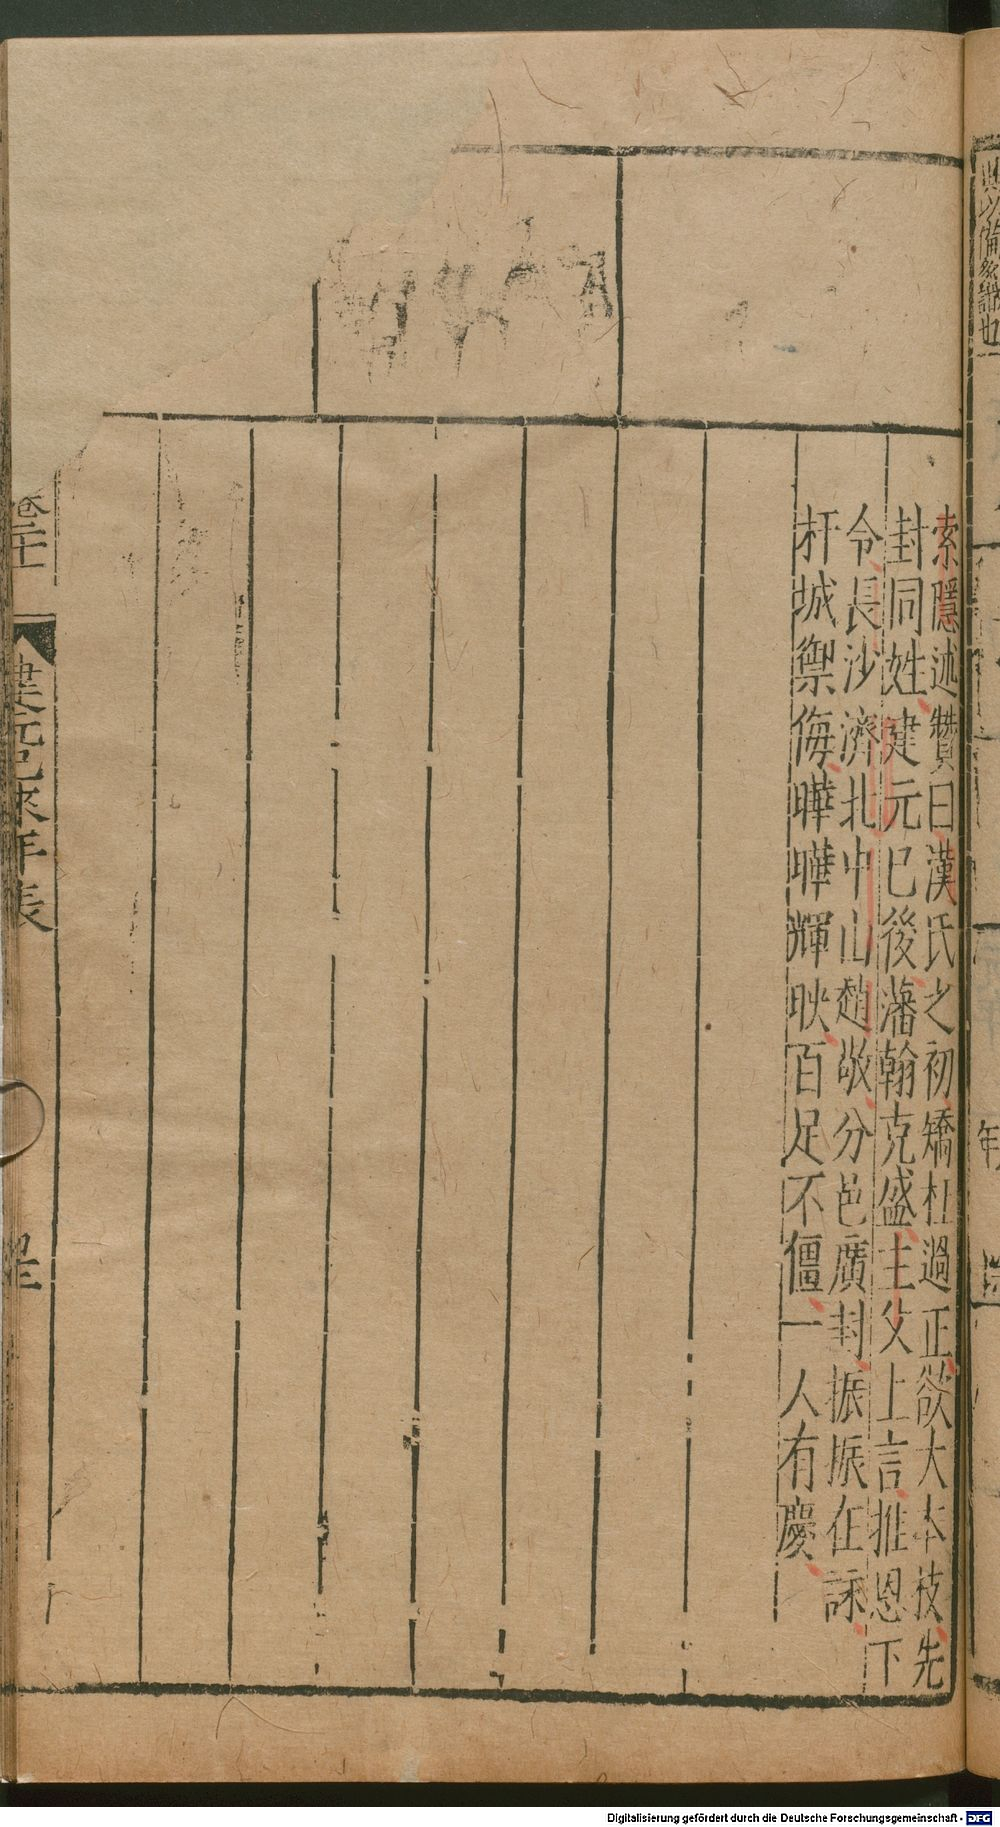 索隱述贊曰漢氏之初矯枉過正欲大本枝先
封同姓建元已後藩翰克盛主父上言推恩下
令長沙濟北中山趙敬分邑廣封振振在詠
扞城禦侮曄曄輝映百足不僵一人有慶
卷二十一
建元已來年表
Digitalisierung gefördert durch die Deutsche Forschungsgemeinschaft - DFG